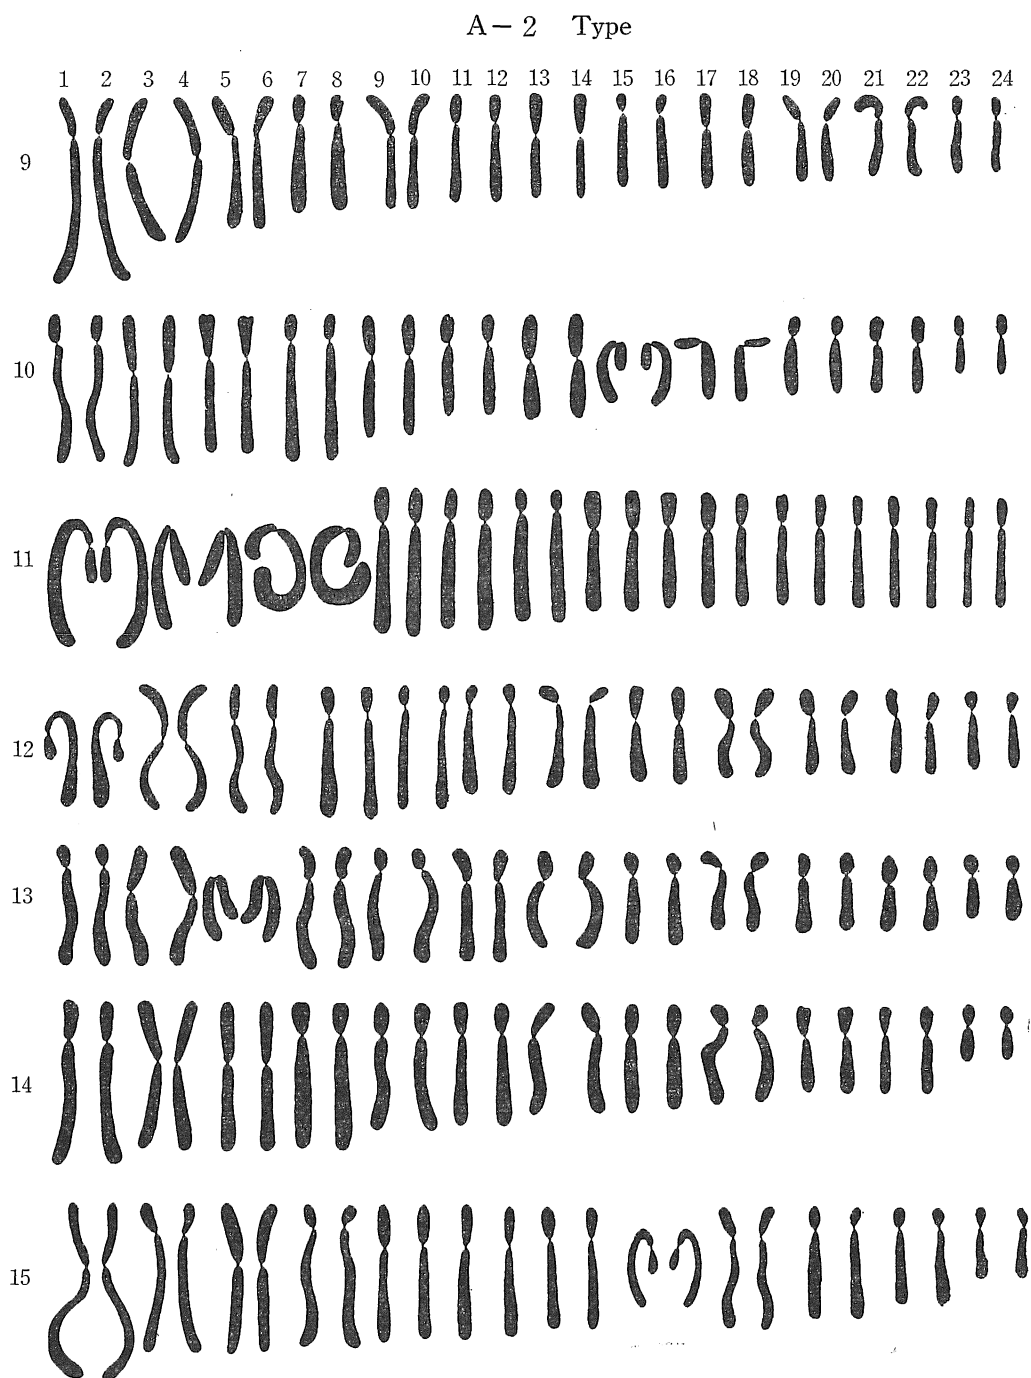 A — 2 Type
1 2 3 4 5 6 7 8 9 10 11 12 13 14 15 16 17 18 19 20 21 22 23 24
9
10
11
12
13
14
15